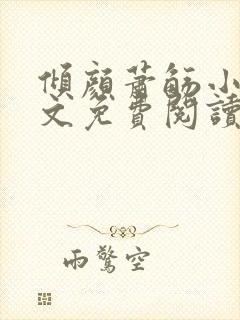 傾顏蕭筋小
文免費閱讀
雨驚空